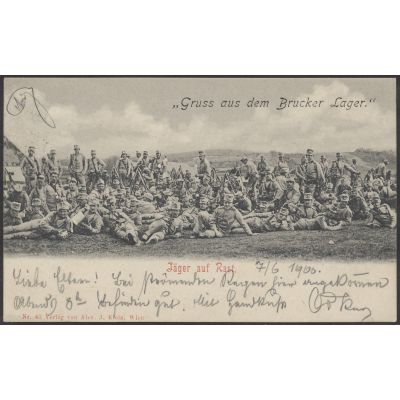 „Gruss aus dem Brucker Lager.“
Jäger auf Rast.
7/6 1900.
Liebe Eltern! Bei strömenden Regen hier angekommen
Abends 8h Befinden gut. Mit Handkuß
Nr. 45 Verlag von Alex. J. Klein, Wien